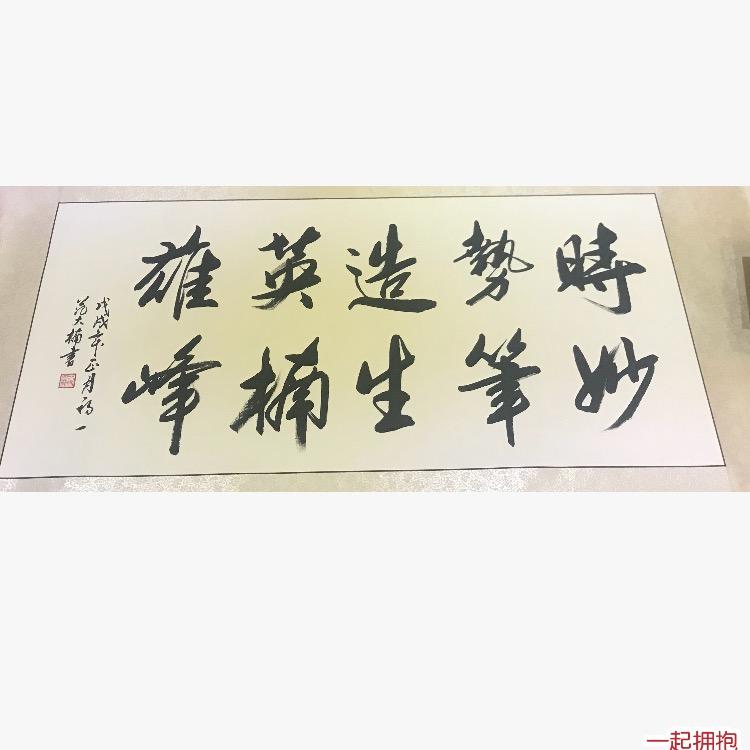 時勢造英雄
妙筆生楠峰
戊戌年正月初一
范大楠書
一起拥抱